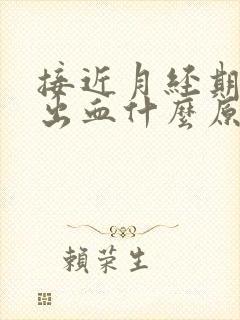 接近月经期
出血什麼原
賴荣生